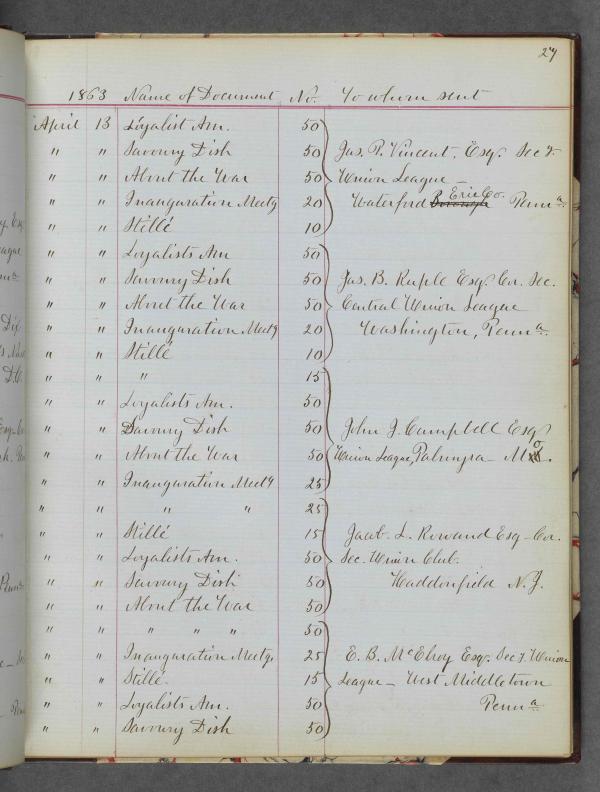 27
1863 Name of Document No. To whom sent
April 13 Loyalist Am. 50
" " Savoury Dish 50 Jas. P. Vincent, Esq. Secy.
" " About the War 50 Union League –
" " Inauguration Meetg 20 Waterford Borough Erie Co. Penna.
" " Stillé 10
" " Loyalists Am 50
" " Savoury Dish 50 Jas. B. Ruple Esq. Cor. Sec.
" " About the War 50 Central Union League
" " Inauguration Meetg 20 Washington, Penna.
" " Stillé 10
" " " 15
" " Loyalists Am. 50
" " Savoury Dish 50 John J. Campbell Esq
" " About the War 50 Union League, Palmyra Mo.
" " Inauguration Meetg 25
" " " " 25
" " Stillé 15 Jacob L. Rowand Esq – Cor.
" " Loyalists Am. 50 Sec. Union Club.
" " Savoury Dish 50 Haddonfield N. J.
" " About the War 50
" " " " " 50
" " Inauguration Meetg. 25 E. B. McElroy Esq. Secy. Union
" " Stillé. 15 League – West Middletown
" " Loyalists Am. 50 Penna.
" " Savoury Dish 50